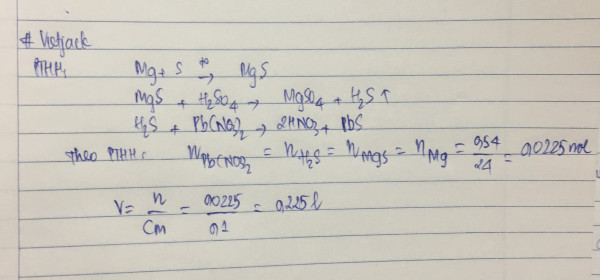 # Vietjack
PTHH:
Mg + S t° → MgS
MgS + H₂SO₄ → MgSO₄ + H₂S ↑
H₂S + Pb(NO₃)₂ → 2HNO₃ + PbS
Theo PTHH: n Pb(NO₃)₂ = n H₂S = n MgS = n Mg = 0,54 / 24 = 0,0225 mol
V = n / CM = 0,0225 / 0,1 = 0,225 l